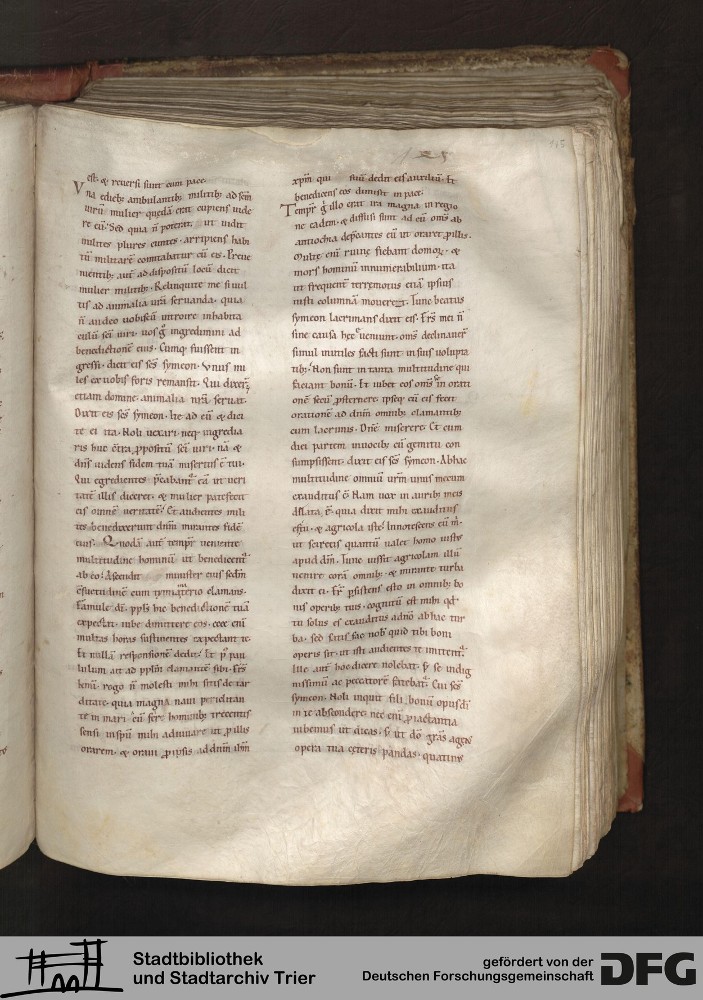 est. & reversi sunt cum pace.
Vna edieb; ambulantib; militib; ad scm
virū mulier quedā erat cupiens vide
re eū. Sed quia n̄ poterat. ut vidit
milites plures euntes. arripiens habi
tū militarē comitabatur cū eis. Preve
nientib; aut ad dispositū locū dicit
mulier militib;. Relinquite me simul
tis ad animalia vrā servanda. quia
n̄ audeo vobiscū introire
scī viri. vos g̊ ingredimini ad
benedictionē eius. Cumq; fuissent in
gressi. dicit eis scs symeon. Vnus mi
les ex vobis foris remansit. Qui dixer̄
etiam domine. animalia nrā servat.
Dixit eis scs symeon. Ite ad eū & dici
te ei ita. Noli vexari. neq; ingredia
ris huc c̄tra ppositū scī viri. nā &
dn̄s videns fidem tuā misertus ē tui.
Qui egredientes pcabant eā ut veri
tatē illis diceret. & mulier patefecit
eis omnē veritatē. Et audientes mili
tes benedixerunt dn̄m mirantes fidē
eius. Quodā aut tempr veniente
multitudine hominū ut benedicent
ab eo. Ascendit minister eius scdm
c̄suetudinē cum clamans.
Famule dī. ppls hic benedictionē tuā
expectat. iube dimittere eos. ecce enī
multas horas sustinentes expectant te.
Et nullā responsionē dedit. Et p pau
lulum ait ad pplm clamantē sibi. Frs
bonī. rogo n̄ molesti mihi sitis de tar
ditate. quia magna navi periclitan
te in mari cū fere hominib; trecentis
sensi inspm mihi adiuvare ut p illis
orarem. & oravi p ipsis ad dn̄m ihm
xpm qui suū dedit eis auxiliū. Et
benedicens eos dimisit in pace.
Tempr g̊ illo erat ira magna in regio
ne eadem. & diffusi sunt ad eū om̄s ab
antiochia depcantes eū ut oraret p illis.
Multe enī ruine fiebant domoꝝ. &
mors hominū innumerabilium. ita
ut frequent̄ terremotus etiā ipsius
iusti columnā moveret. Tunc beatus
symeon lacrimans dixit eis. Frs mei n̄
sine causa hec veniunt. om̄s declinaver
simul inutiles facti sunt in suis volupta
tib;. Non sunt in tanta multitudine qui
faciant bonū. Et iubet eos om̄s in orati
onē secū psternere. ipseq; cū eis fecit
orationē ad dn̄m omnib; clamantib;
cum lacrimis. Dn̄e miserere. Et cum
diei partem invocib; cū gemitu con
sumpsissent. dixit eis scs symeon. Ab hac
multitudine omniū vrm̄ unus mecum
exauditus ē. Nam vox in aurib; meis
Allata ē. quia dixit mihi exauditus
est. & agricola iste. Innotescens eū m̄.
ut sciretis quantū valet homo iustus
apud dn̄m. Tunc iussit agricolam illū
venire corā omnib;. & mirante turba
dixit ei. Fr̄. psistens esto in omnib; bo
nis operib; tuis. cognitū est mihi qd
tu solus es exauditus adn̄o ab hac tur
ba. sed scias fac nob quid tibi boni
operis sit. ut isti audientes te imitent.
Ille aut hoc dicere nolebat. S; se indig
nissimū ac peccatorē fatebat. Cui scs
symeon. Noli inquit fili bonū opus dī
in te abscondere. nec enī p iactantia
iubemus ut dicas. s; ut dō grās agens
opera tua ceteris pandas. quatinus
Stadtbibliothek
und Stadtarchiv Trier
gefördert von der
Deutschen Forschungsgemeinschaft
DFG